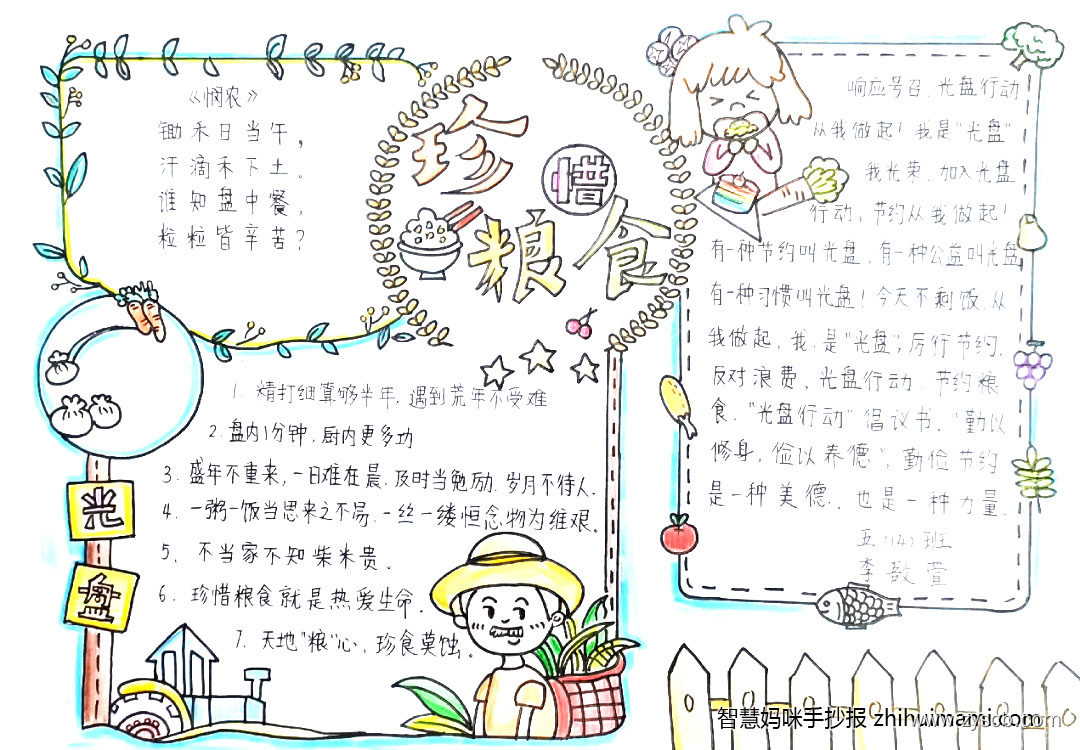 《悯农》
锄禾日当午，
汗滴禾下土。
谁知盘中餐，
粒粒皆辛苦？
珍惜
粮食
1. 精打细算够半年，遇到荒年不受难
2. 盘内1分钟，厨内更多功
3. 盛年不重来，一日难在晨.及时当勉励.岁月不待人.
4. 一粥一饭当思来之不易.一丝一缕恒念物为维艰。
5. 不当家不知柴米贵。
6. 珍惜粮食就是热爱生命.
7. 天地"粮"心，珍食莫蚀。
光
盘
响应号召.光盘行动
从我做起！我是"光盘"
我光荣.加入光盘
行动，节约从我做起！
有一种节约叫光盘.有一种公益叫光盘
有一种习惯叫光盘！今天不剩饭.从
我做起.我.是"光盘",厉行节约.
反对浪费.光盘行动.节约粮
食."光盘行动"倡议书."勤以
修身，俭以养德"，勤俭节约
是一种美德.也是一种力量.
五(14)班
李敔萱
智慧妈咪手抄报 zhihuimami.com